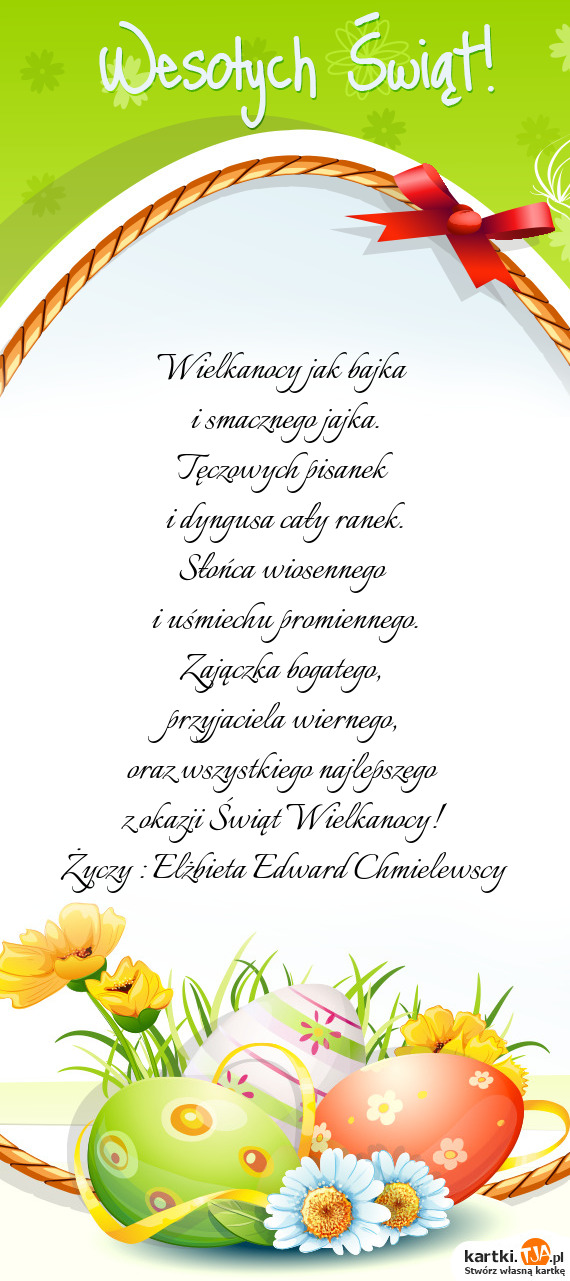 Wesołych Świąt!
Wielkanocy jak bajka
i smacznego jajka.
Tęczowych pisanek
i dyngusa cały ranek.
Słońca wiosennego
i uśmiechu promiennego.
Zajączka bogatego,
przyjaciela wiernego,
oraz wszystkiego najlepszego
z okazji Świąt Wielkanocy!
Życzy : Elżbieta Edward Chmielewscy
kartki.TJA.pl
Stwórz własną kartkę